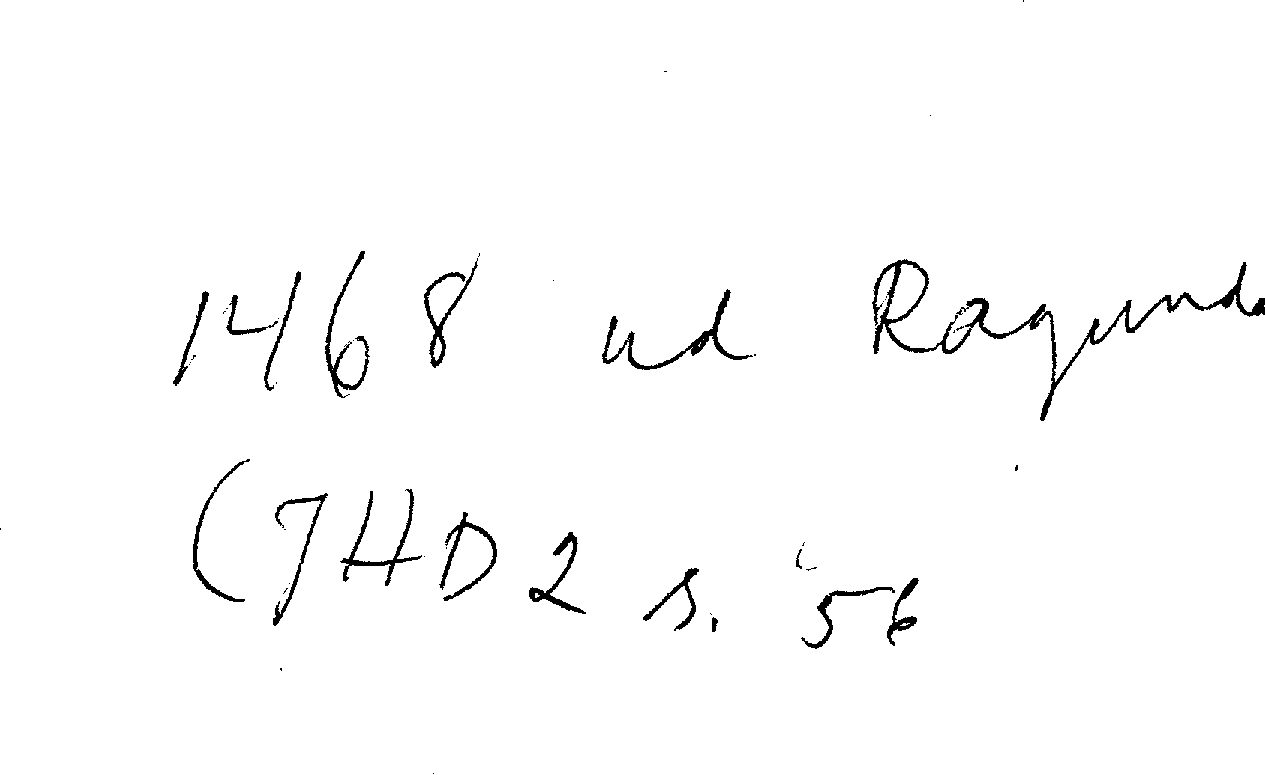 1468 ud Ragunda
(JHD 2 s. 56